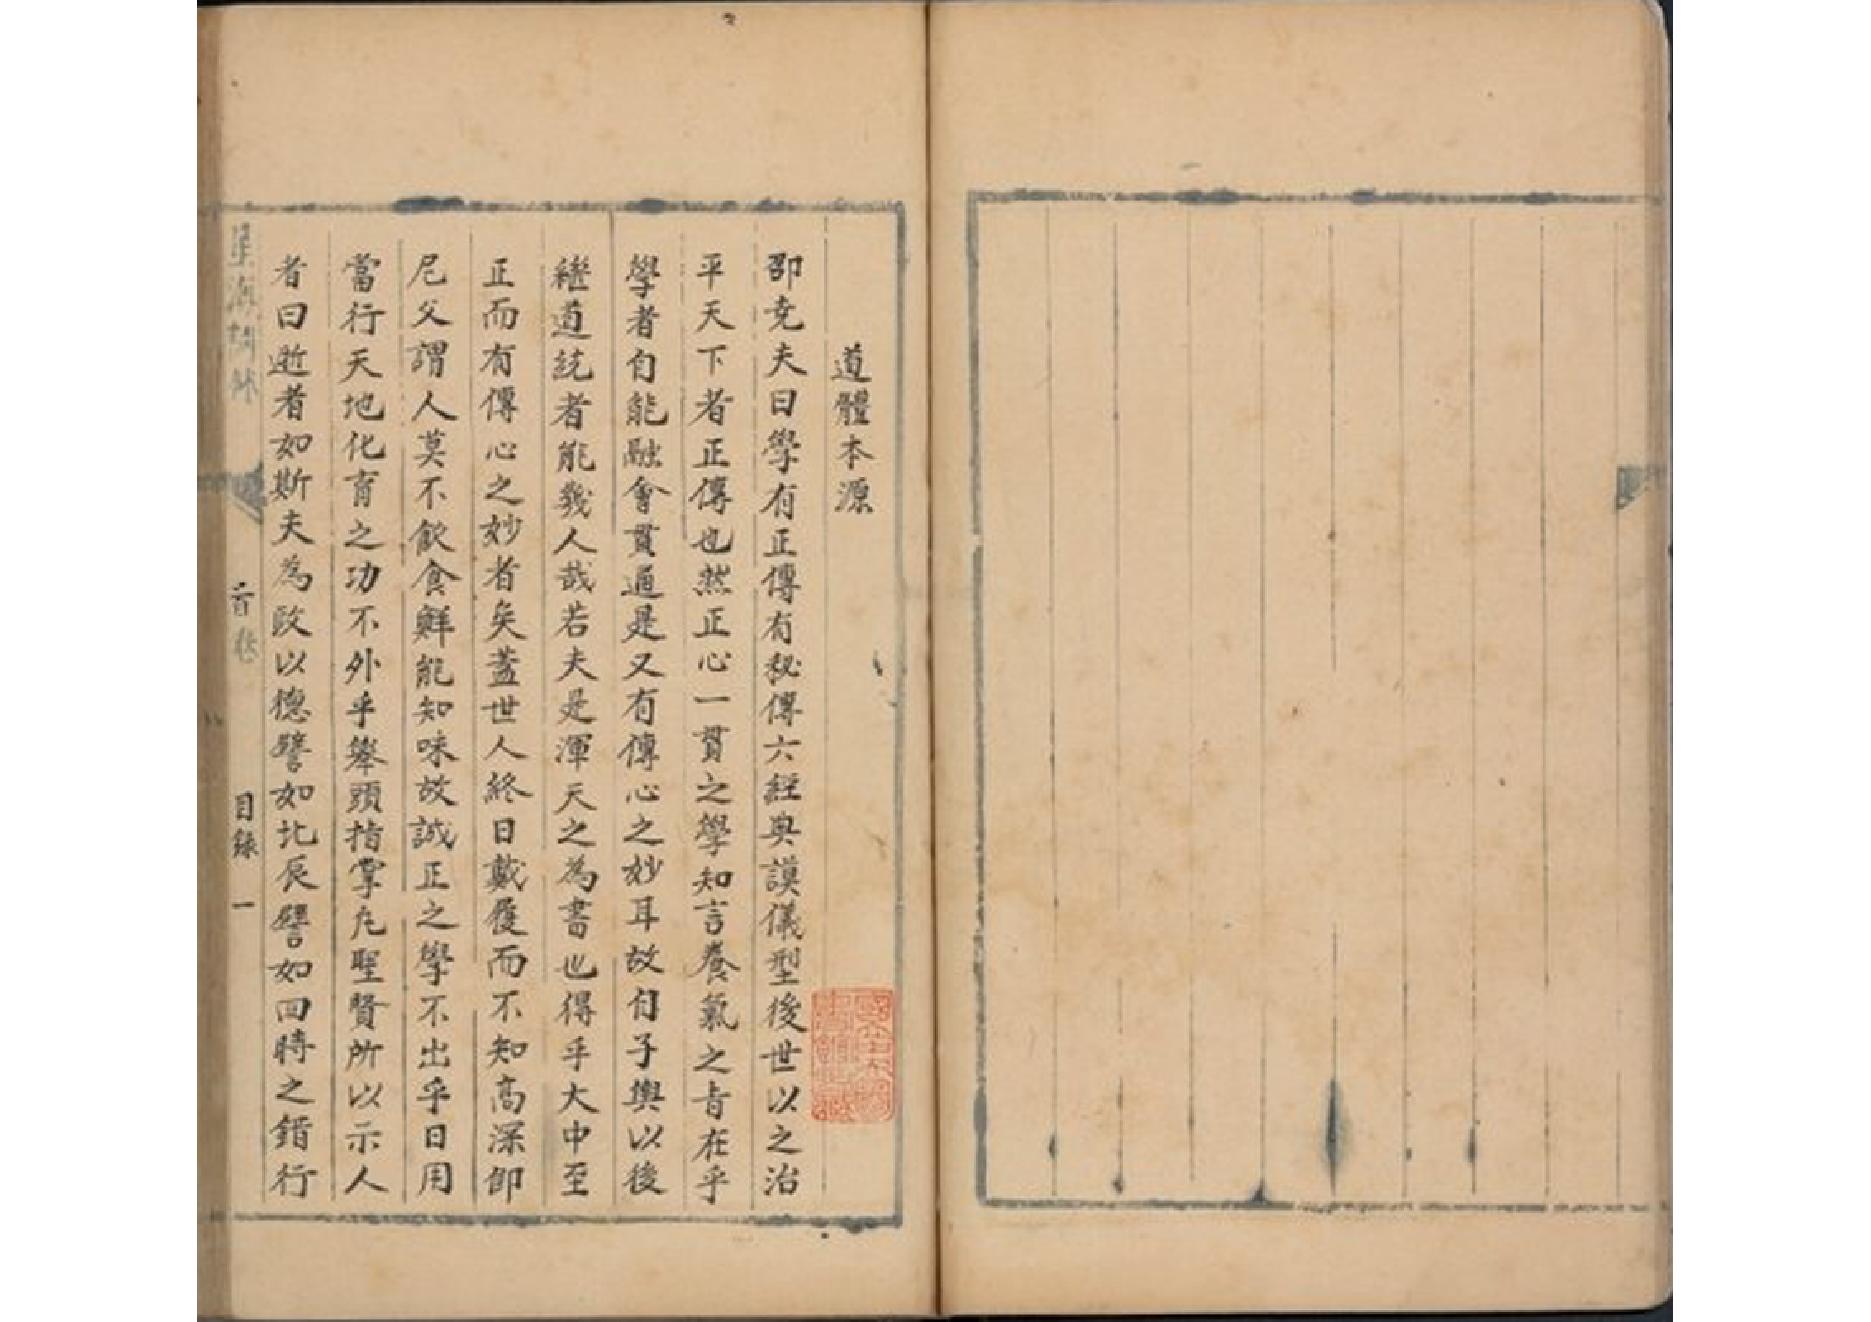 道體本源
邵尭夫曰學有正傳有秘傳六經典謨儀型後世以之治
平天下者正傳也然正心一貫之學知言養氣之旨在乎
學者自能融會貫通是又有傳心之妙耳故自子輿以後
繼道統者能幾人哉若夫是渾天之為書也得乎大中至
正而有傳心之妙者矣蓋世人終日戴履而不知高深仰
尼父謂人莫不飲食鮮能知味故誠正之學不出乎日用
當行天地化育之功不外乎舉頭指掌凡聖賢所以示人
者曰逝者如斯夫為政以德譬如北辰譬如四時之錯行
星海
首卷
目錄 一